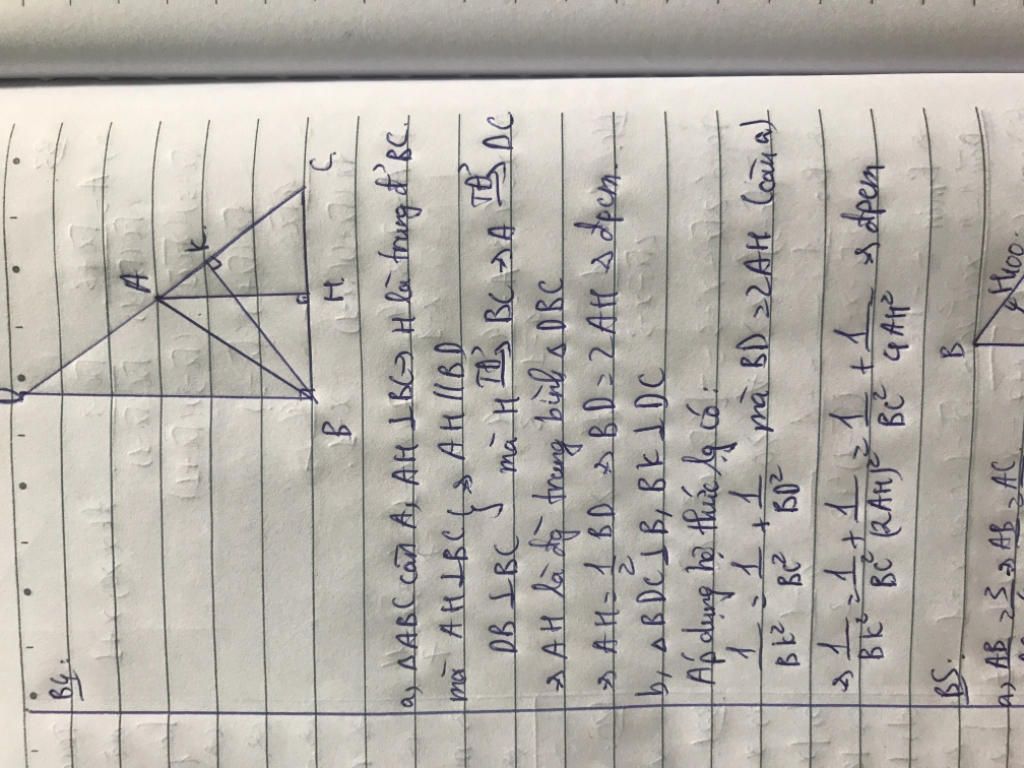 B4.
D
A
K
B
H
C
a, ΔABC cân A, AH ⊥ BC → H là trung đ' BC.
mà AH ⊥ BC } → AH // BD
DB ⊥ BC mà H TĐ' BC → A TĐ' DC
→ AH là đg trung bình Δ DBC
→ AH = 1/2 BD → BD = 2AH → đpcm.
b, Δ BDC ⊥ B, BK ⊥ DC
Áp dụng hệ thức lg có:
1/BK² = 1/BC² + 1/BD² mà BD = 2AH (câu a)
→ 1/BK² = 1/BC² + 1/(2AH)² = 1/BC² + 1/4AH² → đpcm
B5.
B
H
a, AB = 3 → AB = AC